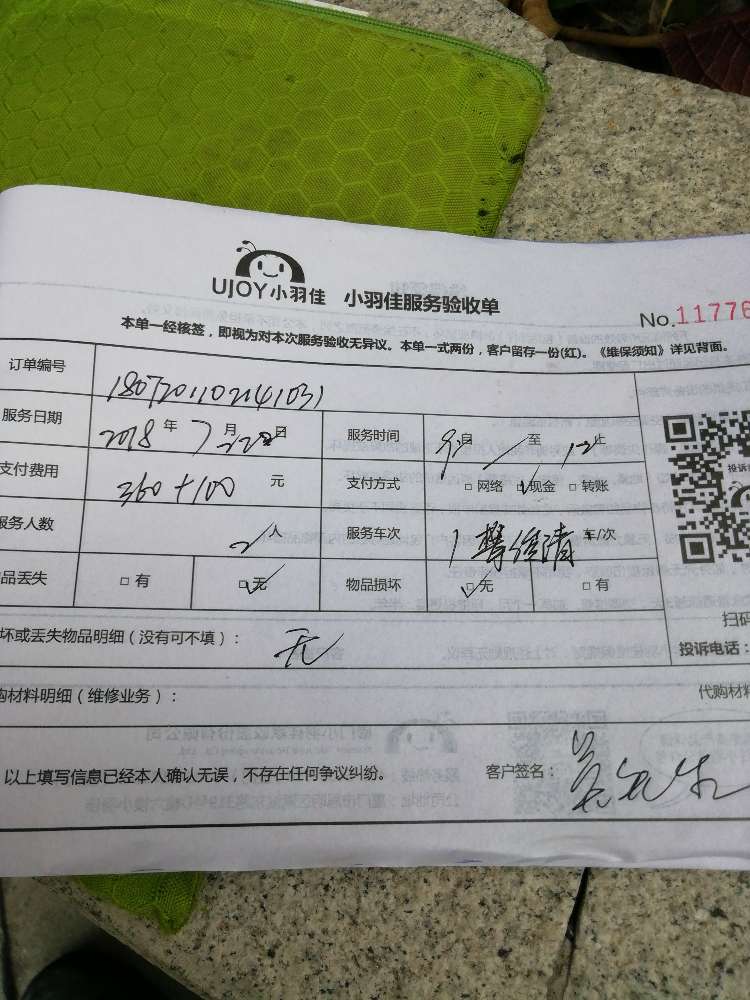 UJOY小羽佳 小羽佳服务验收单
No.11776
本单一经核签，即视为对本次服务验收无异议。本单一式两份，客户留存一份(红)。《维保须知》详见背面。
订单编号 1807201102141031
服务日期 2018年7月22日 服务时间 9自 至 12止
支付费用 360+100 元 支付方式 □网络 ☑现金 □转账
服务人数 2人 服务车次 1 车/次
品丢失 □有 ☑无 物品损坏 ☑无 □有
坏或丢失物品明细（没有可不填）： 无
扫码
投诉电话：
购材料明细（维修业务）： 代购材料
以上填写信息已经本人确认无误，不存在任何争议纠纷。 客户签名：